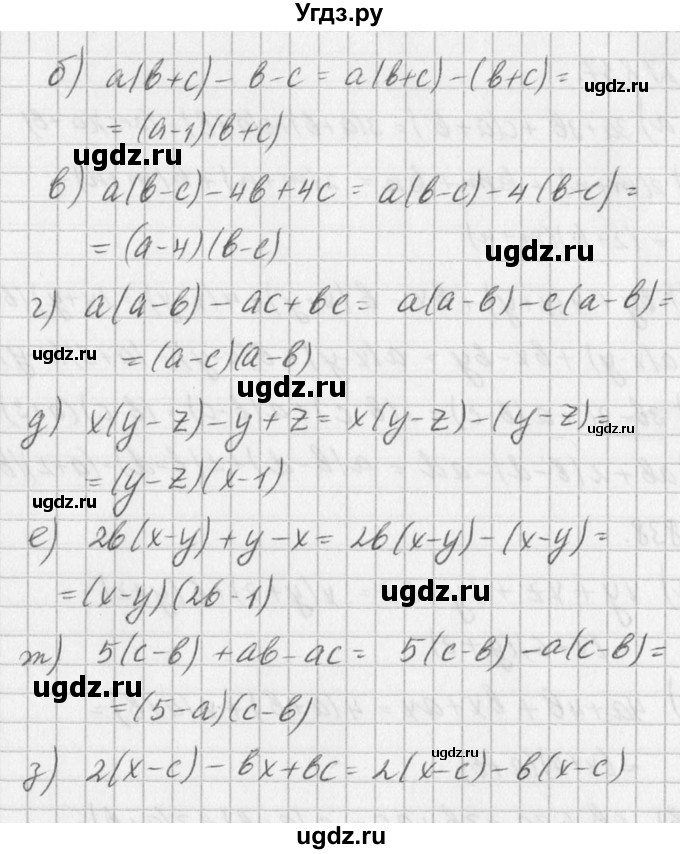 Угдз.ру
б) a(b+c) - b-c = a(b+c) - (b+c) =
ugdz.ru
= (a-1)(b+c)
ugdz.ru
в) a(b-c) - 4b + 4c = a(b-c) - 4(b-c) =
= (a-4)(b-c)
ugdz.ru
г) a(a-b) - ac + bc = a(a-b) - c(a-b) =
ugdz.ru
= (a-c)(a-b)
ugdz.ru
д) x(y-z) - y + z = x(y-z) - (y-z) =
ugdz.ru
= (y-z)(x-1)
ugdz.ru
е) 2b(x-y) + y - x = 2b(x-y) - (x-y) =
= (x-y)(2b-1)
ugdz.ru
ж) 5(c-b) + ab - ac = 5(c-b) - a(c-b) =
ugdz.ru
= (5-a)(c-b)
ugdz.ru
з) 2(x-c) - bx + bc = 2(x-c) - b(x-c)
ugdz.ru